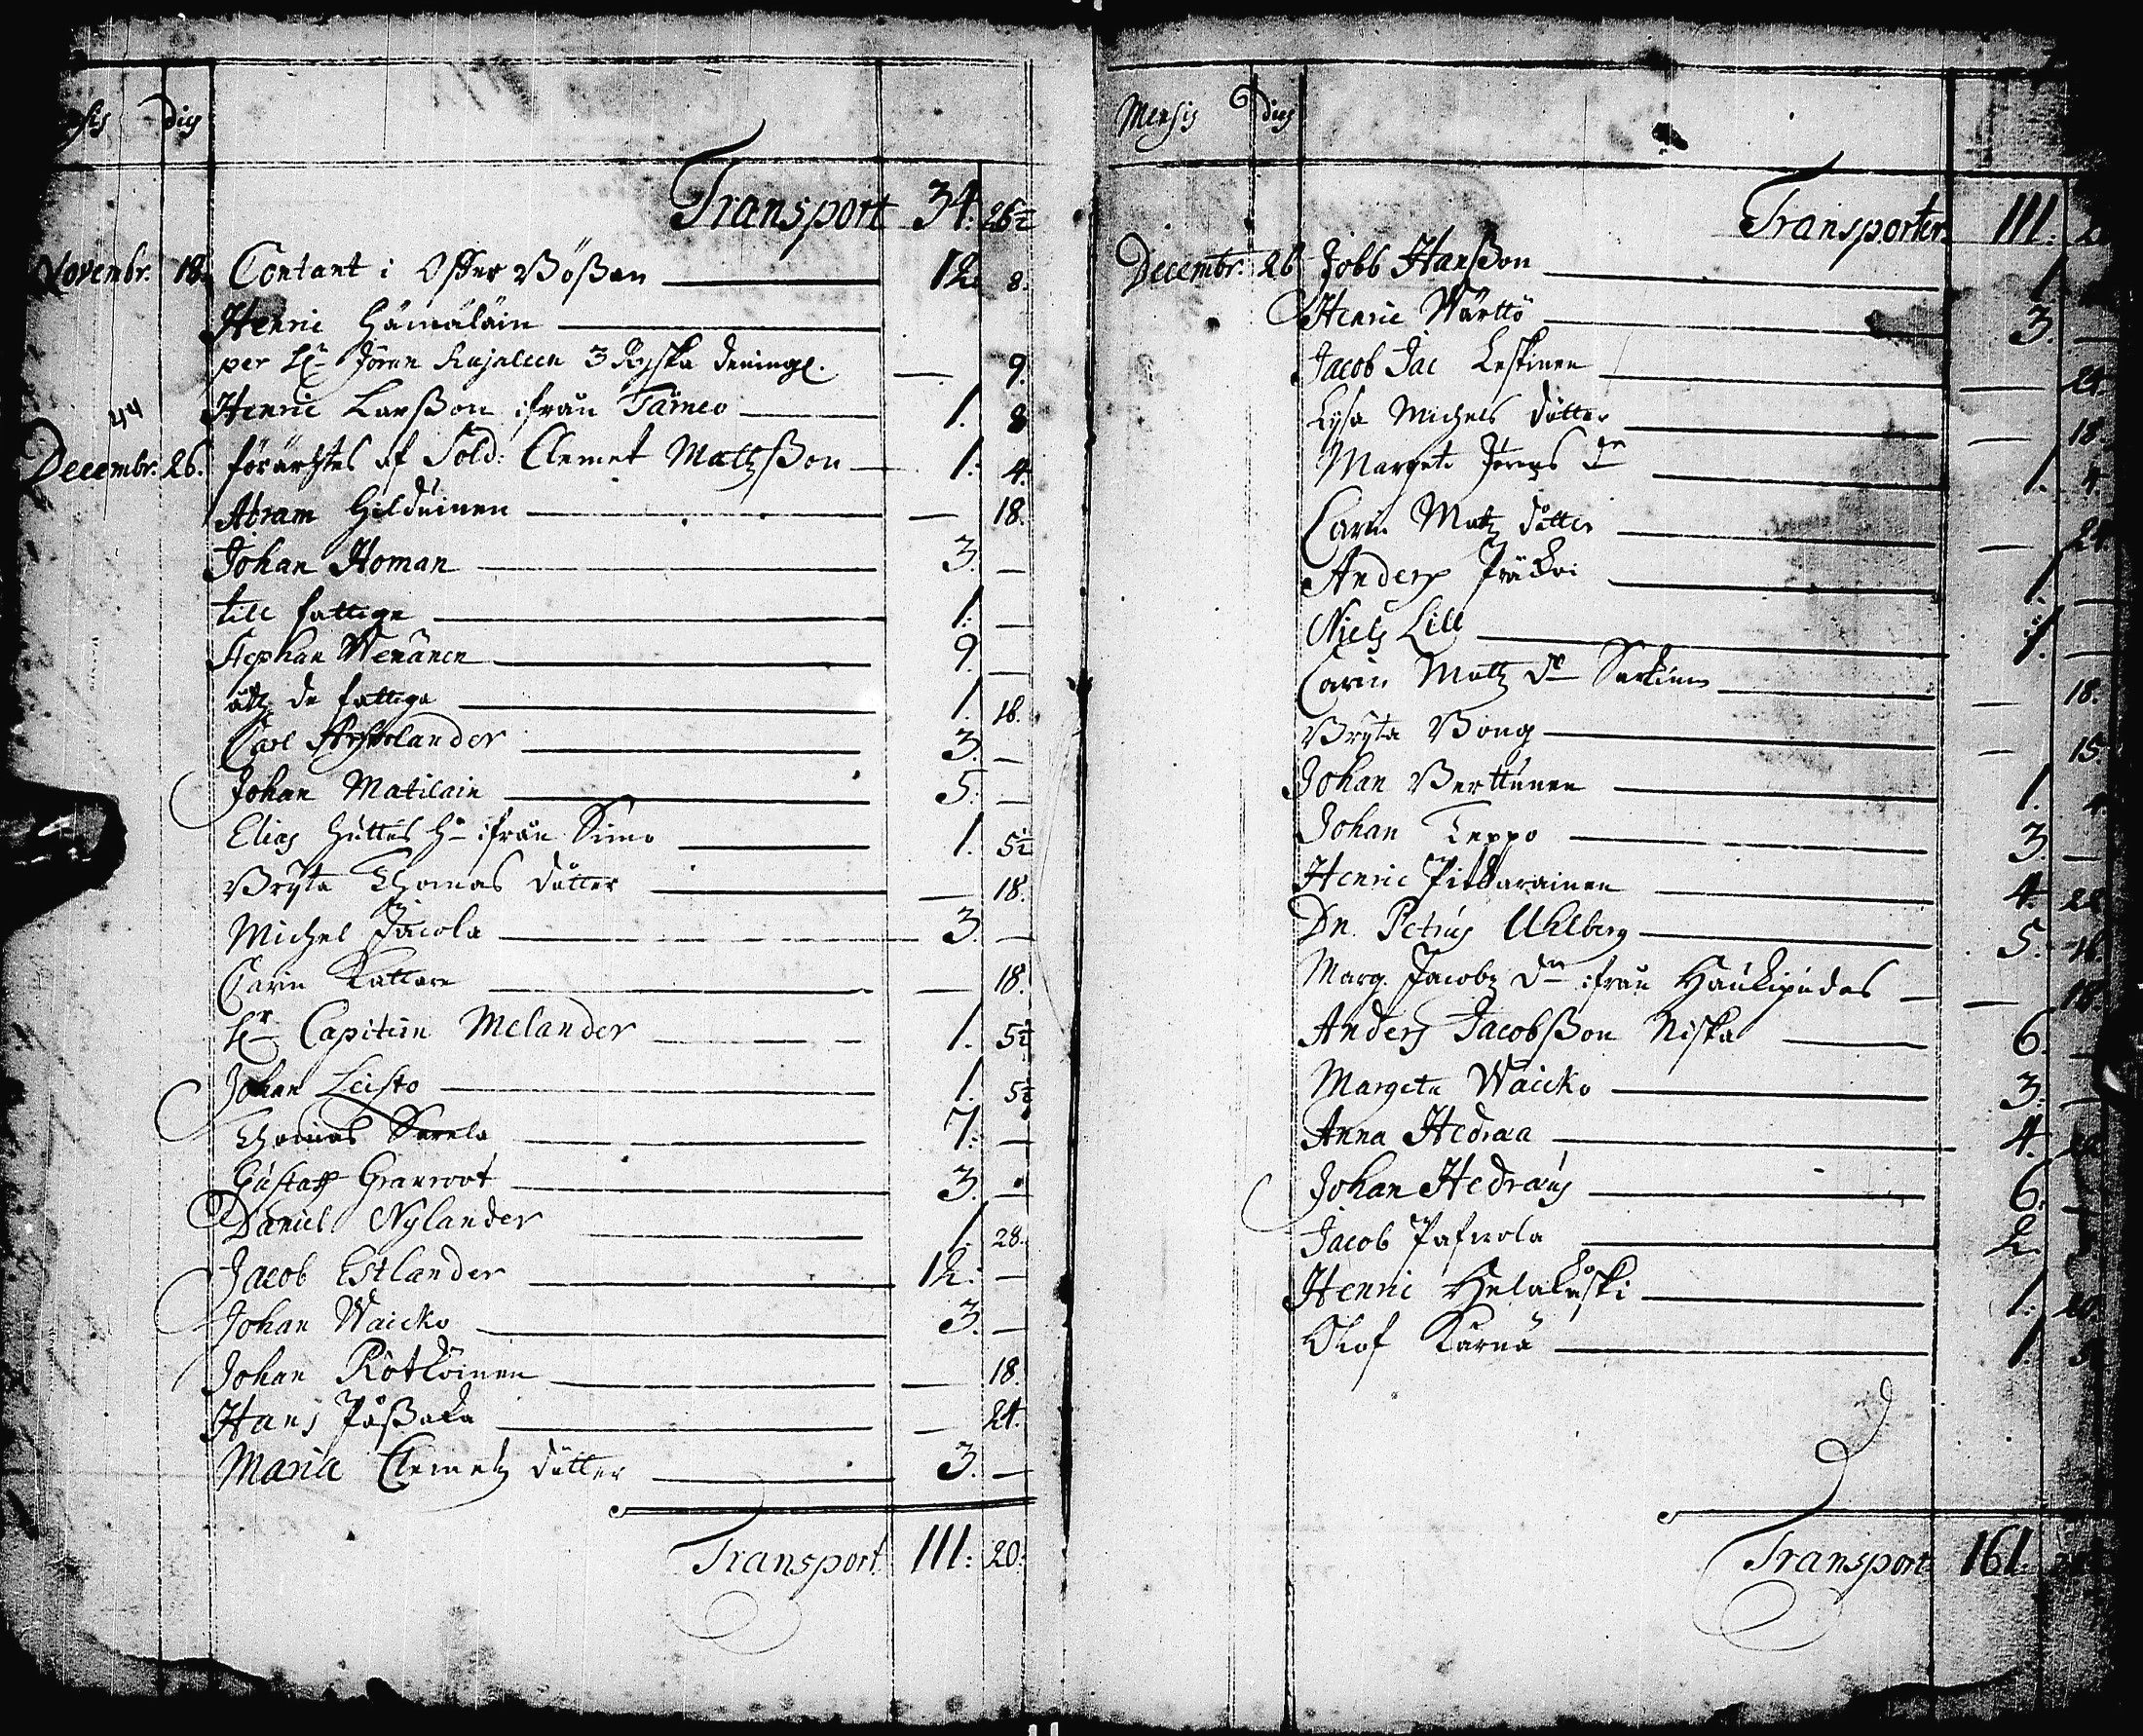 sis dies
Transport 34. 26½
Novembr. 18. Contant i Offer Bößan 12. 8.
Henric Hämäläin
per Hr Jöran Kajaleen 3 Ryska deningl. — 9.
Henric Larßon ifrån Tärneo 1. 8
44
Decembr. 26. förährtes af Sold: Clemet Mattzßon 1. 4.
Abram Hilduinen — 18.
Johan Homan 3. —
till fattige 1. —
Stephan Wenänen 9. —
åth de fattiga 1. 16.
Carl 3. —
Johan Matilain 5. —
Elias Huttus H ifrån Simo 1. 5½
Bryta Thomas dåtter — 18.
Michel Jacola 3. —
Carin Kattare — 18.
Hr Capitein Melander 1. 5½
Johan Leisto 1. 5½
Thomas Sarela 7. —
Gustaff Granroot 3. —
Daniel Nylander 1. 28.
Jacob Estlander 12. —
Johan Waicko 3. —
Johan Rötköinen — 18.
Hans Påßaka — 24.
Maria Clemetz dåtter 3. —
Transport 111. 20.
Mensis dies
Transporter 111. 2
Decembr. 26 Jobb Hanßon 1.
Henric Wärttö 3. —
Jacob Jac Leskinen — 24
Lysa Michels dåtter — 18.
Margeta Jörens dr 1. 4.
Carin Matz dåtter — 24.
Anders Präcki 1. —
Niels Lill 1. —
Carin Matz dr Sarkinen — 18.
Bryta Bong — 15
Johan Verttunen 1.
Johan Keppo 3. —
Henric Pitkarainen 4. 22
Dn. Petrus Uhlberg 5. 16.
Marg. Jacobz dr ifrån Haukipudas — 18.
Anders Jacobßon Niska 6. —
Margeta Waicko 3. —
Anna Hedraa 4.
Johan Hedraus 6. —
Jacob Pafvola 2.
Henric Helakoski 1. 20.
Olof Kärnä 1.
Transport 161.